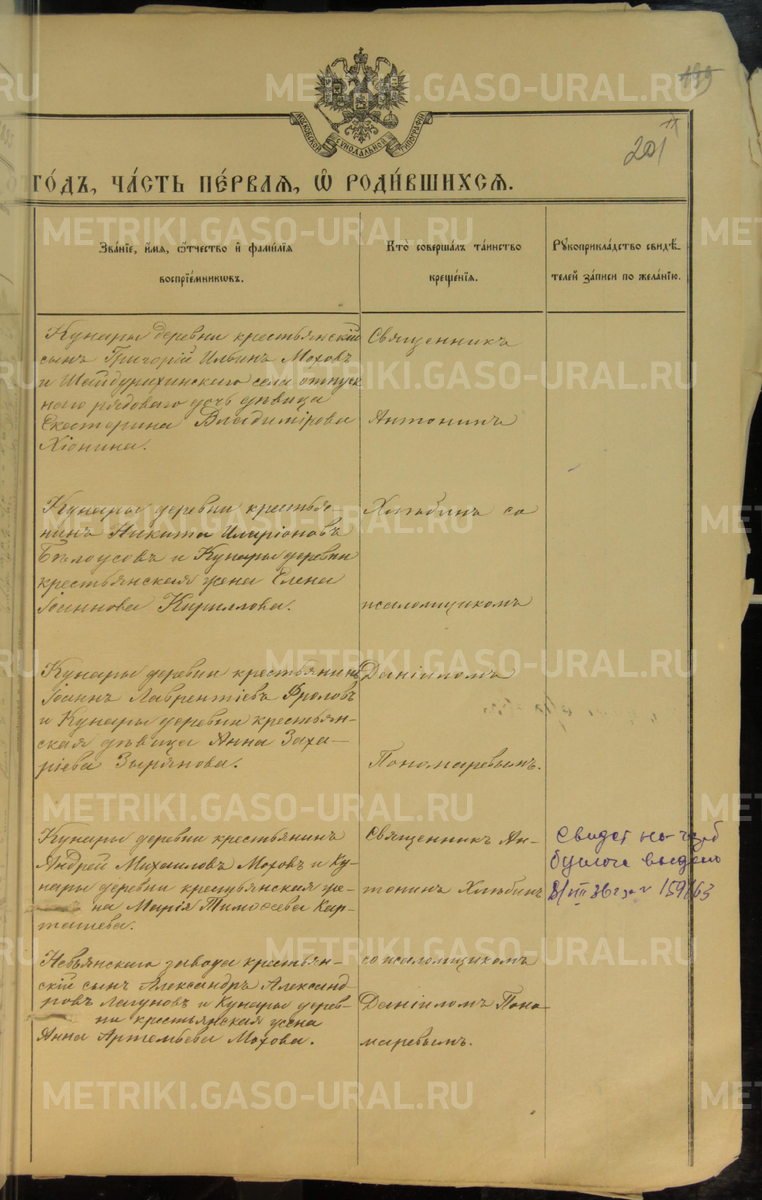 199
201
МОСКОВСКОЙ СѴНОДАЛЬНОЙ ТИПОГРАФІИ
ГОДЪ, ЧАСТЬ ПЕРВАЯ, Ѽ РОДИВШИХСЯ.
Званіе, имя, ѻтчество и фамилія
воспріемниковъ.
Кто совершалъ таинство
крещенія.
Рукоприкладство свидѣ-
телей записи по желанію.
Кунары деревни крестьянскій
сынъ Григорій Ильинъ Мохов
и Шайдурихинскаго села отпуск
ного рядового дочь дѣвица
Екатерина Владимірова
Хіонина.
Священникъ
Антонинъ
Кунары деревни крестья-
нинъ Никита Иларіоновъ
Бѣлоусовъ и Кунары деревни
крестьянская жена Елена
Іоаннова Кириллова.
Хлѣбинъ со
псаломщикомъ
Кунары деревни крестьянинъ
Іоаннъ Лаврентіевъ Фроловъ
и Кунары деревни крестьян-
ская дѣвица Анна Заха-
ріева Зырянова.
Даніиломъ
Пономаревымъ.
Кунары деревни крестьянинъ
Андрей Михаиловъ Моховъ и Ку-
нары деревни крестьянская же-
на Марія Тимоѳеева Кар-
ташева.
Священникъ Ан-
тонинъ Хлѣбинъ
Свидет на
бумаге выдано
8/III 36 г за № 159163
Невьянскаго завода крестьян-
скій сынъ Александръ Александ-
ровъ Лагуновъ и Кунары дерев-
ни крестьянская жена
Анна Артемьева Мохова.
со псаломщикомъ
Даніиломъ Поно-
маревымъ.
METRIKI.GASO-URAL.RU